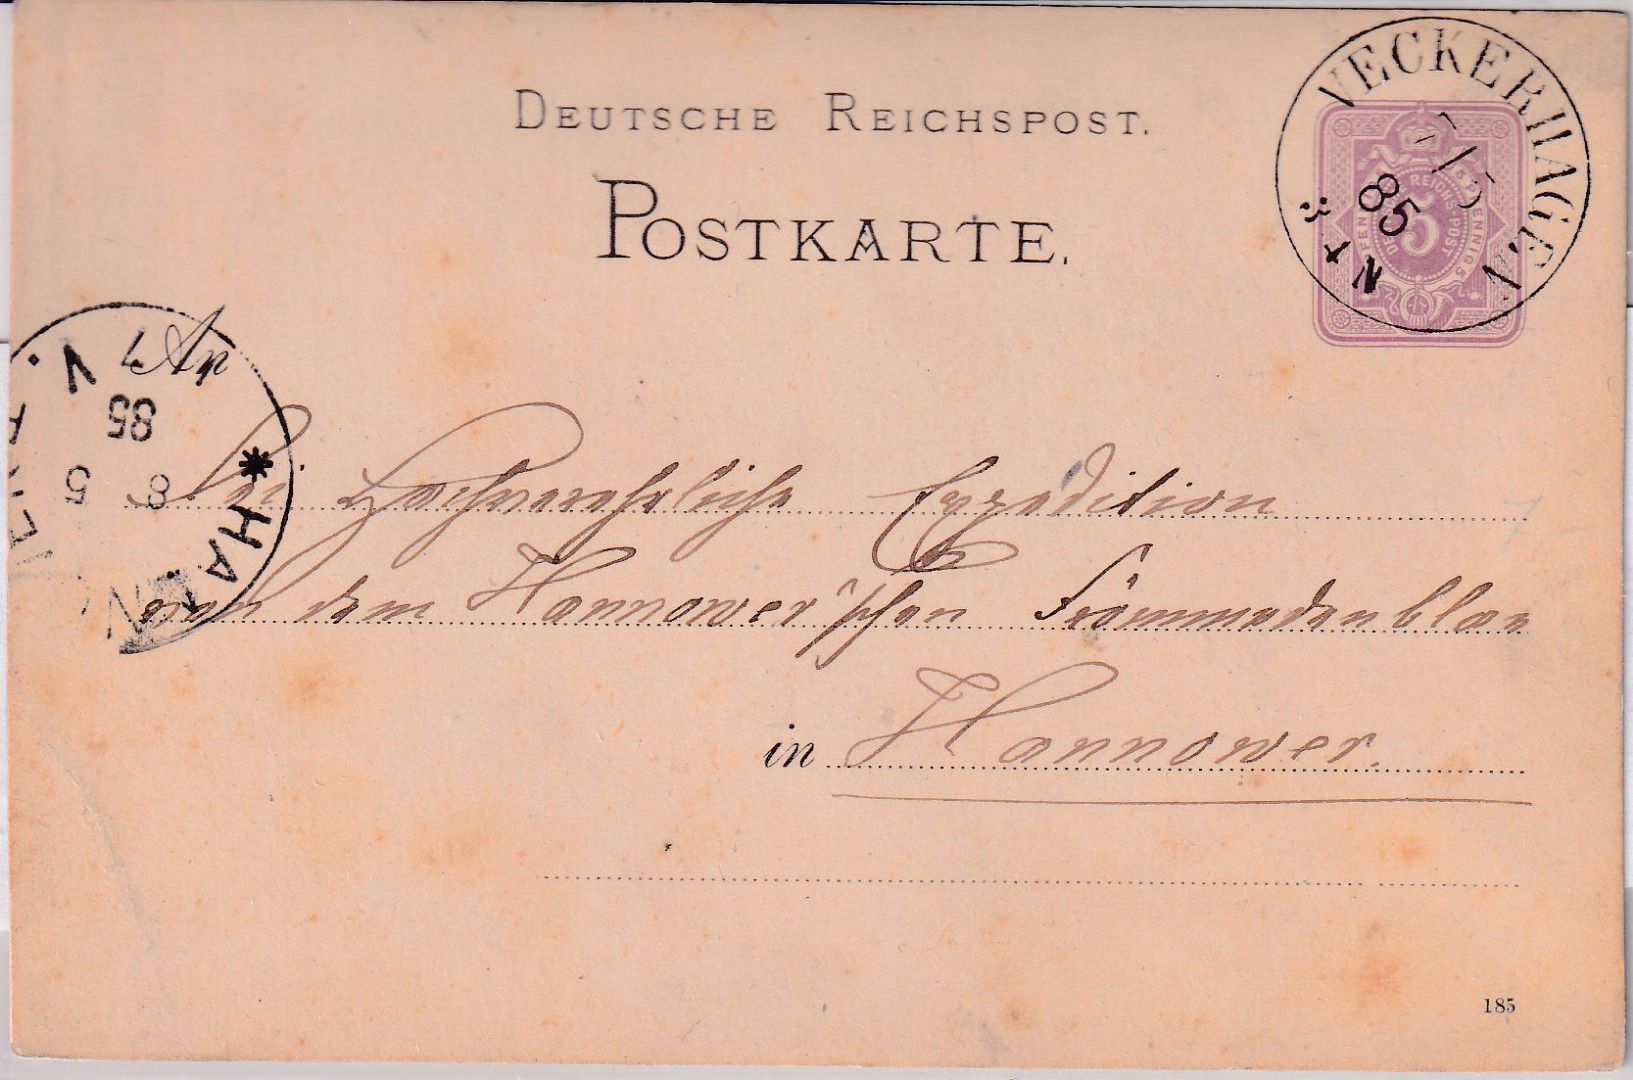 DEUTSCHE REICHSPOST.
POSTKARTE.
VECKERHAGEN
7/5
85
3 * N
5 PFENNIG 5
DEUTSCHE REICHS-POST
5
An
V.
7
85
8 5
* HAN
hochverehrliche Expedition
von dem Hannover'schen
in Hannover.
185